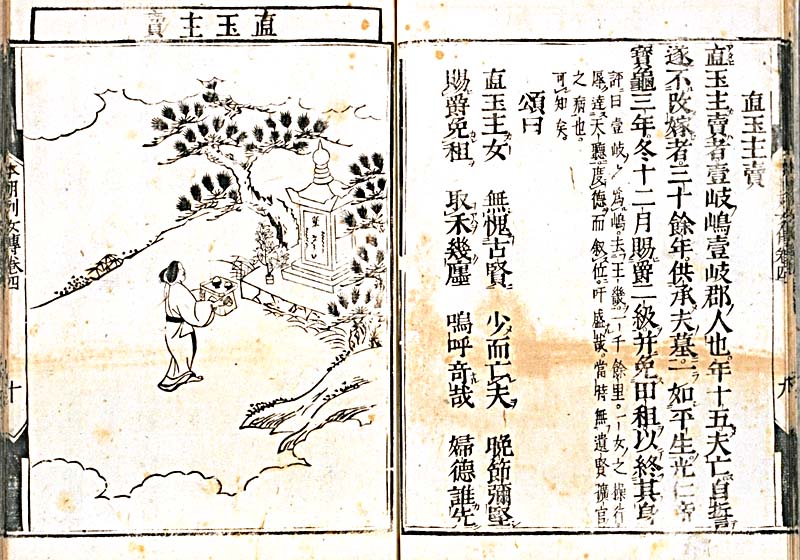 直玉主賣
直玉主賣者壹岐嶋壹岐郡人也。年十五夫亡自誓
遂不改嫁者。三十餘年。供承夫墓。一如平生光仁帝
寶龜三年。冬十二月賜爵二級并免田租以終其身
評曰壹岐爲嶋。去王畿一千餘里。一女之操行
屢達天聽。度德而叙位。吁盛哉。當時無遺賢曠官
之病也。
可知矣。
頌曰
直玉主女 無愧古賢 少而亡夫 晩節彌堅
賜爵免租 取禾幾廛 嗚呼奇哉 婦德誰先
九
直玉主賣
本朝列女傳卷四
十